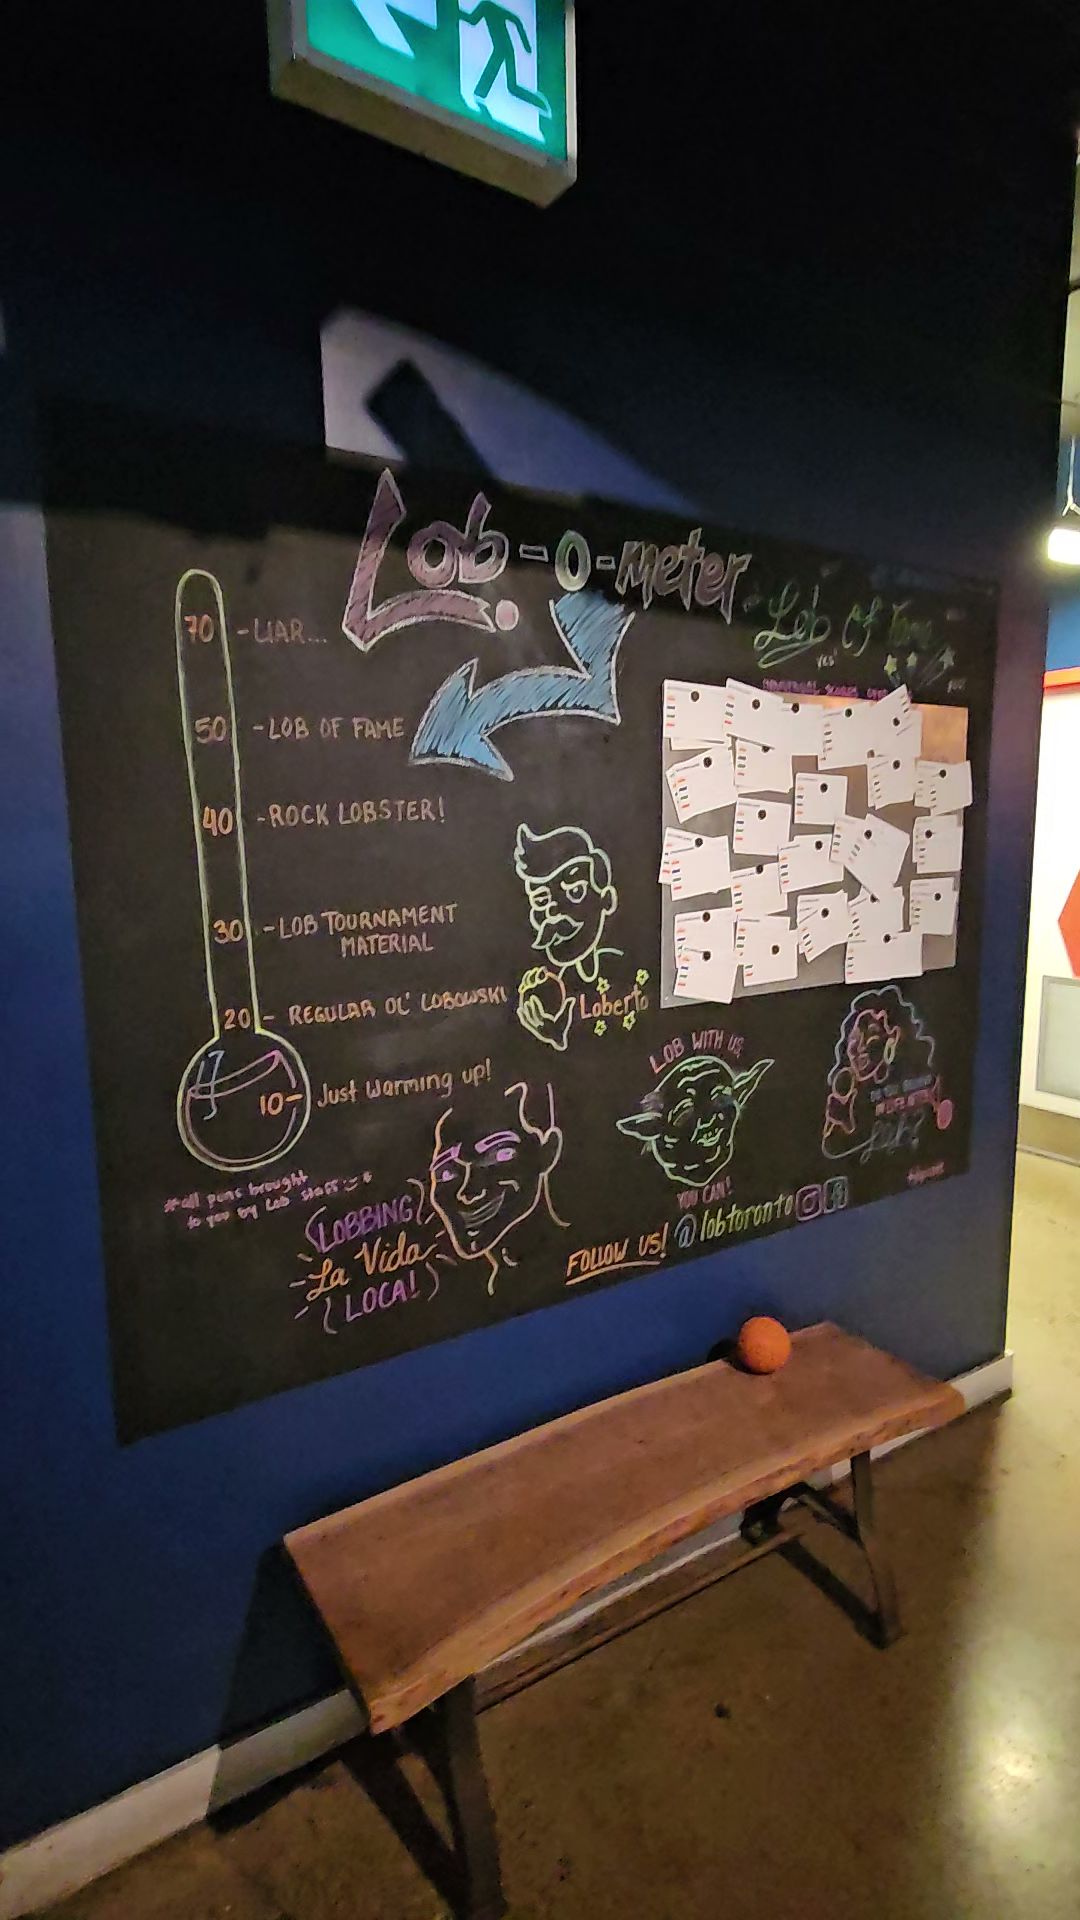 Lob-o-meter
70 - LIAR...
50 - LOB OF FAME
40 - ROCK LOBSTER!
30 - LOB TOURNAMENT
MATERIAL
20 - REGULAR OL' LOBOWSKI
10 - Just warming up!
*all puns brought
to you by Lob staff
LOBBING
La Vida
LOCA!
Loberto
Lob Of Fame
LOB WITH US,
YOU CAN!
IN LIFE AFTER
FOLLOW US! @lobtoronto